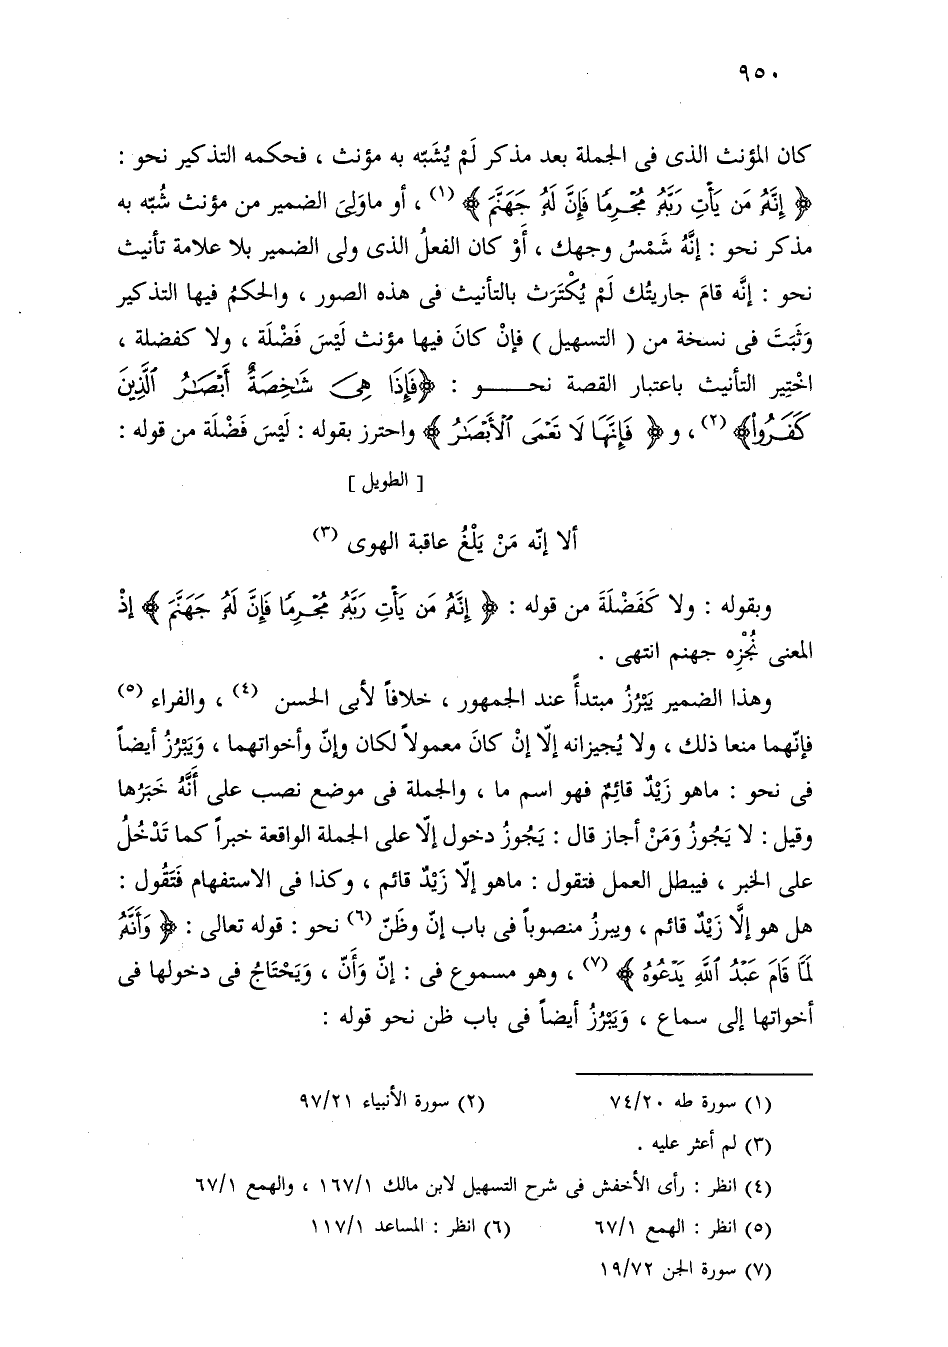 ٩٥٠
كان المؤنث الذى فى الجملة بعد مذكر لَمْ يُشَبّه به مؤنث ، فحكمه التذكير نحو :
﴿ إِنَّهُ مَن يَأْتِ رَبَّهُ مُجْرِمًا فَإِنَّ لَهُ جَهَنَّمَ ﴾ (١) ، أو ماوَلِىَ الضمير من مؤنث شُبّه به
مذكر نحو : إنَّهُ شَمْسُ وجهك ، أَوْ كان الفعلُ الذى ولى الضمير بلا علامة تأنيث
نحو : إنَّه قامَ جاريتُك لَمْ يُكْتَرَث بالتأنيث فى هذه الصور ، والحكمُ فيها التذكير
وَثَبَتَ فى نسخة من ( التسهيل ) فإنْ كانَ فيها مؤنث لَيْسَ فَضْلَة ، ولا كفضلة ،
اخْتِير التأنيث باعتبار القصة نحـــــو : ﴿فَإِذَا هِىَ شَـٰخِصَةٌ أَبْصَـٰرُ ٱلَّذِينَ
كَفَرُوا۟﴾ (٢) ، و ﴿ فَإِنَّهَا لَا تَعْمَى ٱلْأَبْصَـٰرُ ﴾ واحترز بقوله : لَيْسَ فَضْلَة من قوله :
[ الطويل ]
ألا إنّه مَنْ يَلْغُ عاقبة الهوى (٣)
وبقوله : ولا كَفَضْلَةَ من قوله : ﴿ إِنَّهُ مَن يَأْتِ رَبَّهُ مُجْرِمًا فَإِنَّ لَهُ جَهَنَّمَ ﴾ إذْ
المعنى نُجْزِه جهنم انتهى .
وهذا الضمير يَبْرُزُ مبتدأً عند الجمهور ، خلافاً لأبى الحسن (٤) ، والفراء (٥)
فإنّهما منعا ذلك ، ولا يُجيزانه إلّا إنْ كانَ معمولاً لكان وإنّ وأخواتهما ، وَيَبْرُزُ أيضاً
فى نحو : ماهو زَيْدٌ قائِمٌ فهو اسم ما ، والجملة فى موضع نصب على أَنَّهُ خَبَرُها
وقيل : لا يَجُوزُ وَمَنْ أجاز قال : يَجُوزُ دخول إلّا على الجملة الواقعة خبراً كما تَدْخُلُ
على الخبر ، فيبطل العمل فتقول : ماهو إلّا زَيْدٌ قائم ، وكذا فى الاستفهام فَتَقُول :
هل هو إلَّا زَيْدٌ قائم ، ويبرزُ منصوباً فى باب إنّ وظَنّ (٦) نحو : قوله تعالى : ﴿ وَأَنَّهُ
لَمَّا قَامَ عَبْدُ ٱللَّهِ يَدْعُوهُ ﴾ (٧) ، وهو مسموع فى : إنّ وَأَنّ ، وَيَحْتَاجُ فى دخولها فى
أخواتها إلى سماع ، وَيَبْرُزُ أيضاً فى باب ظن نحو قوله :
(١) سورة طه ٧٤/٢٠ (٢) سورة الأنبياء ٩٧/٢١
(٣) لم أعثر عليه .
(٤) انظر : رأى الأخفش فى شرح التسهيل لابن مالك ١٦٧/١ ، والهمع ٦٧/١
(٥) انظر : الهمع ٦٧/١ (٦) انظر : المساعد ١١٧/١
(٧) سورة الجن ١٩/٧٢